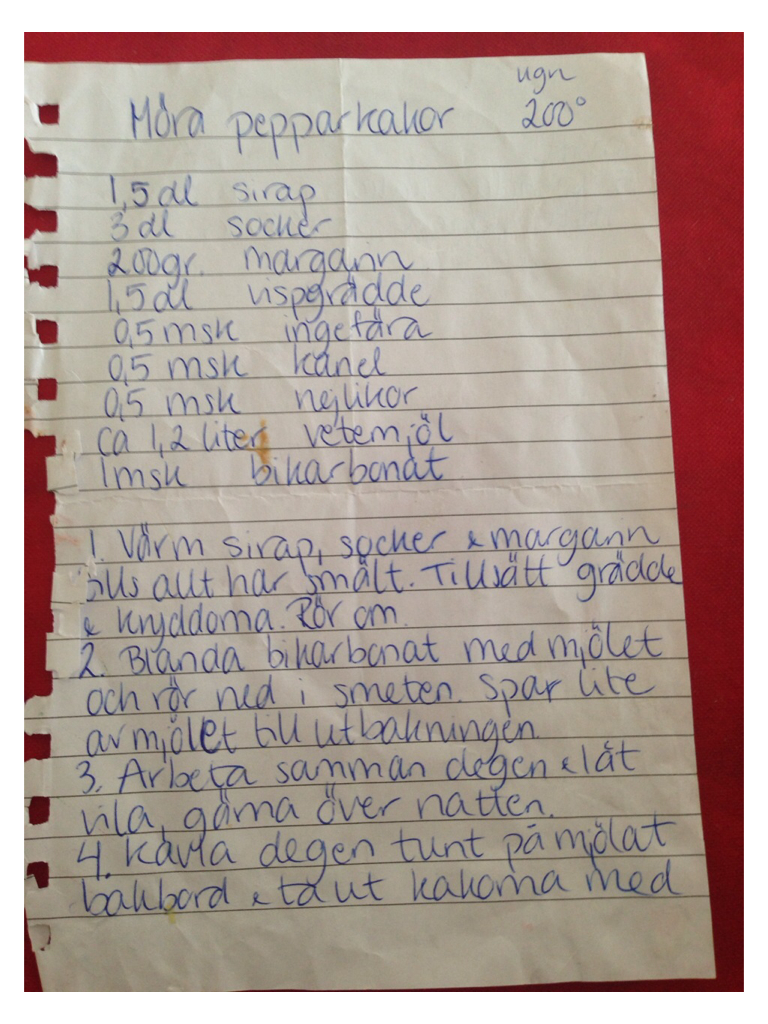 ugn
Möra pepparkakor 200°
1,5 dl sirap
3 dl socker
200gr. margarin
1,5 dl vispgrädde
0,5 msk ingefära
0,5 msk kanel
0,5 msk nejlikor
ca 1,2 liter vetemjöl
1msk bikarbonat
1. Värm sirap, socker & margarin
tills allt har smält. Tillsätt grädde
& kryddorna. Rör om.
2. Blanda bikarbonat med mjölet
och rör ned i smeten. Spar lite
av mjölet till utbakningen.
3. Arbeta samman degen & låt
vila, gärna över natten.
4. Kavla degen tunt på mjölat
bakbord & ta ut kakorna med